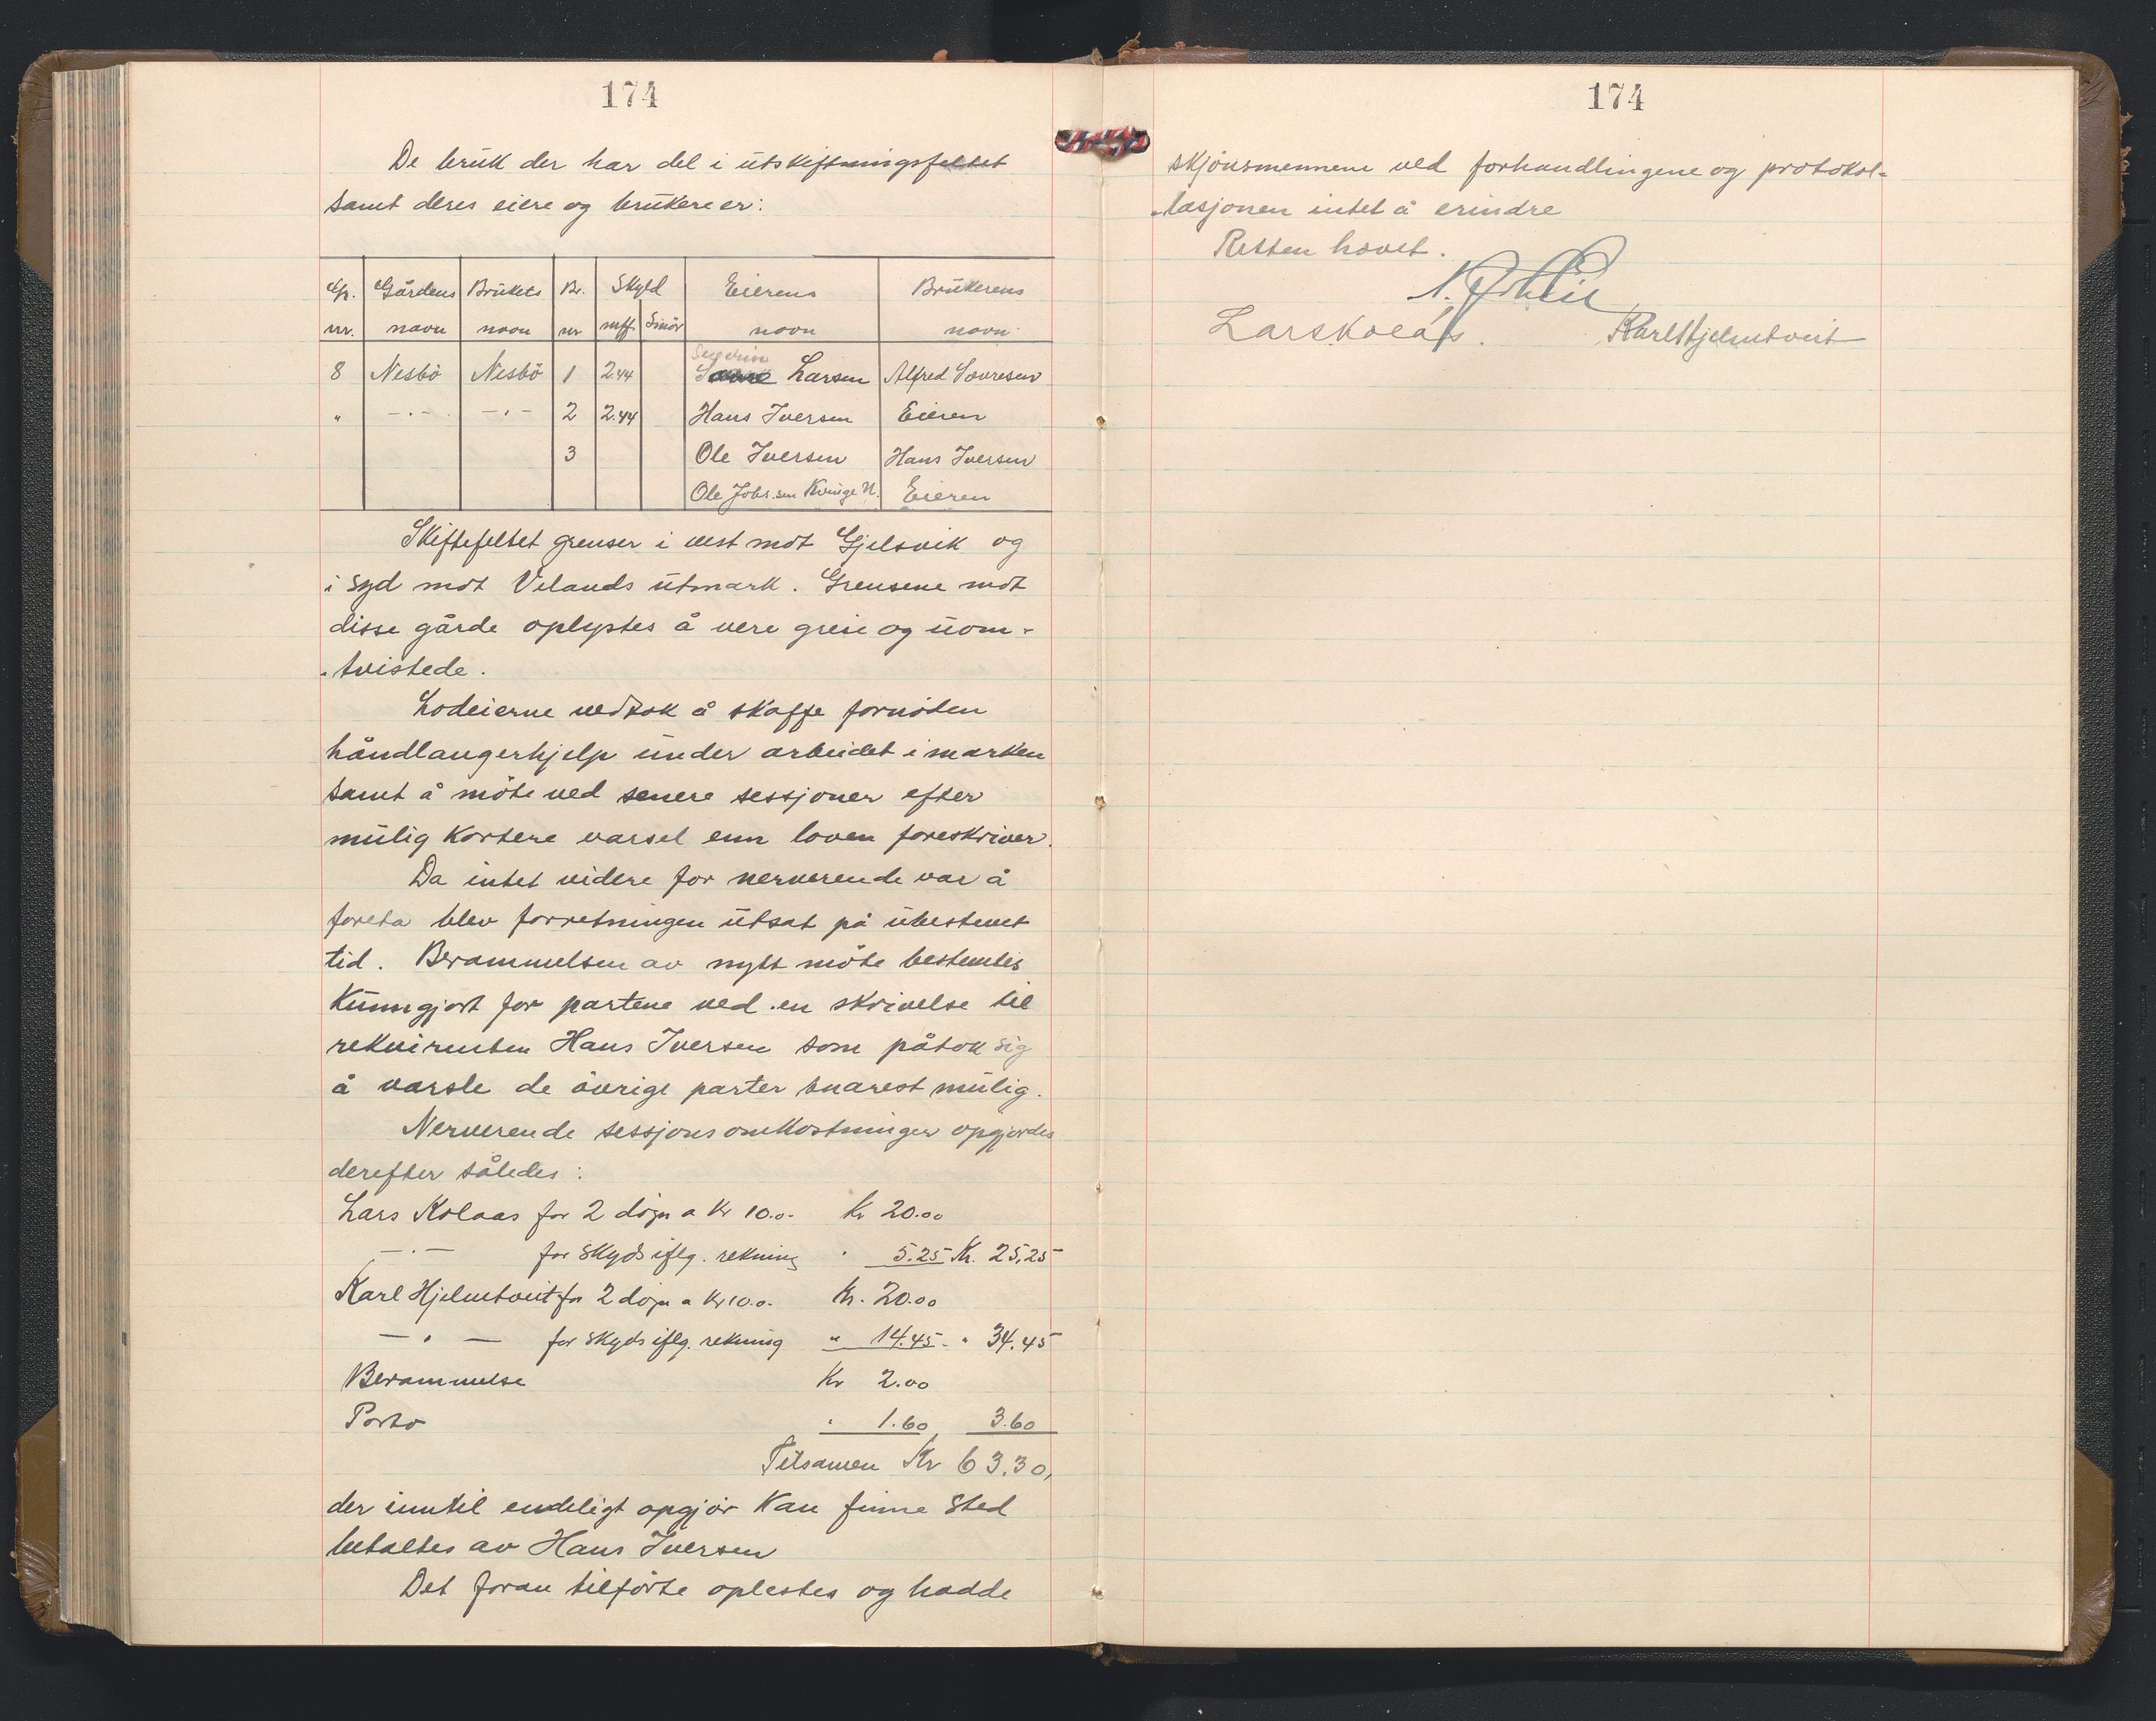 174
De bruk der har del i utskiftningsfeltet
samt deres eiere og brukere er:
Gr. nr. | Gårdens navn | Brukets navn | Br. nr | Skyld mff. Smör | Eierens navn | Brukerens navn
8 | Nesbö | Nesbö | 1 | 2.44 | Severin Larsen | Alfred Sovresen
" | -"- | -"- | 2 | 2.44 | Hans Iversen | Eieren
3 | Ole Iversen | Hans Iversen
Ole Johs.sen Kvinge N. | Eieren
Skiftefeltet grenser i vest mot Gjelsvik og
i syd mot Velands utmark. Grensene mot
disse gårde oplystes å vere greie og uom-
-tvistede.
Lodeierne vedtok å skaffe fornöden
håndlangerhjelp under arbeidet i marken
samt å möte ved senere sessjoner efter
mulig kortere varsel enn loven foreskriver.
Da intet videre for nerverende var å
foreta blev forretningen utsat på ubestemt
tid. Berammelsen av nytt möte bestemtes
kunngjort for partene ved en skrivelse til
rekvirenten Hans Iversen som påtok sig
å varsle de övrige parter snarest mulig.
Nerverende sessjonsomkostninger opgjordes
derefter således:
Lars Kolaas for 2 dögn a Kr 10.00 Kr 20.00
-"- for skyds iflg. rekning " 5.25 Kr. 25,25
Karl Hjelmtveit for 2 dögn a Kr 10.00 Kr. 20.00
-"- for skyds iflg. rekning " 14.45 - " 34.45
Berammelse Kr 2.00
Porto " 1.60 3.60
Tilsamen Kr 63.30,
der inntil endeligt opgjör kan finne sted
betaltes av Hans Iversen
Det foran tilförte oplestes og hadde
174
skjönsmennene ved forhandlingene og protokol-
-lasjonen intet å erindre
Retten hevet.
Lars Kolås. Karl Hjelmtveit